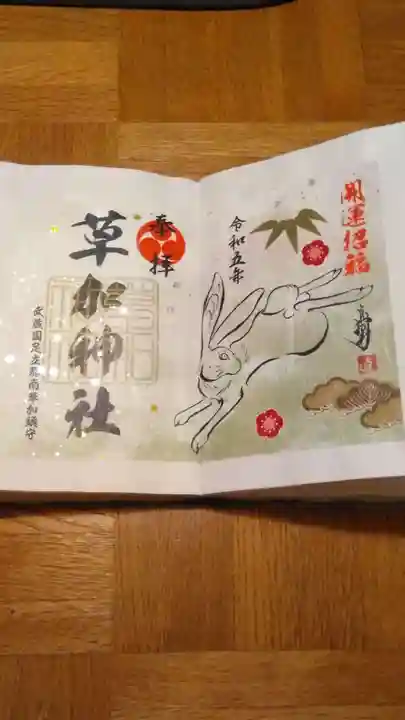 開運招福
令和五年
奉拝
草加神社
武蔵国足立郡南草加鎮守